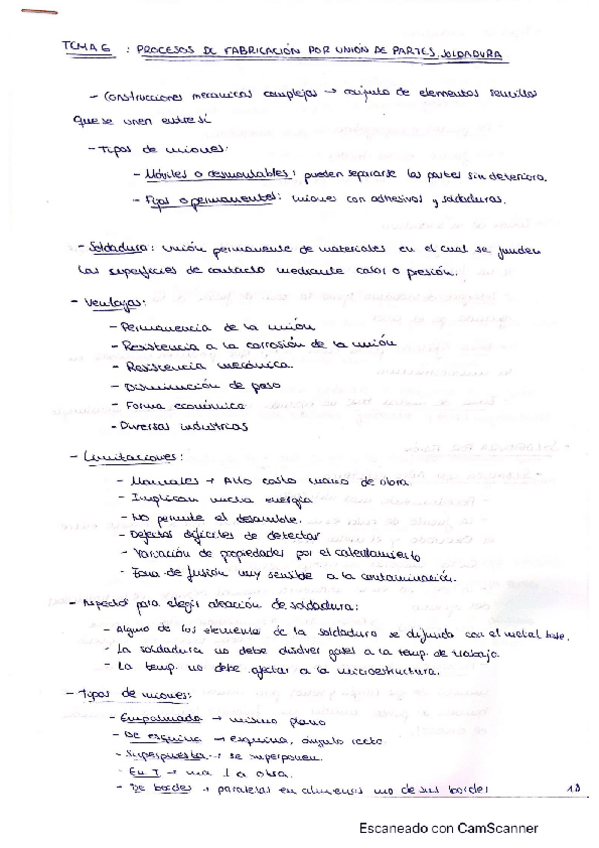 TEMA 6 : PROCESOS DE FABRICACIÓN POR UNIÓN DE PARTES. SOLDADURA
- Construcciones mecanicas complejas → conjunto de elementos sencillos
que se unen entre sí
- Tipos de uniones:
- Móviles o desmontables: pueden separarse las partes sin deterioro.
- Fijas o permanentes: uniones con adhesivos y soldaduras.
- Soldadura: unión permanente de materiales en el cual se funden
las superficies de contacto mediante calor o presión.
- Ventajas:
- Permanencia de la unión
- Resistencia a la corrosión de la unión
- Resistencia mecánica.
- Disminución de peso
- Forma económica
- Diversas industrias
- Limitaciones:
- Manuales → Alto costo mano de obra.
- Implican mucha energía
- No permite el desamble.
- Defectos difíciles de detectar
- Variación de propiedades por el calentamiento
- Zona de fusión muy sensible a la contaminación.
- Aspectos para elegir aleación de soldadura:
- Alguno de los elementos de la soldadura se difunda con el metal base.
- La soldadura no debe disolver gases a la temp. de trabajo.
- La temp. no debe afectar a la microestructura.
- Tipos de uniones:
- Empalmado → mismo plano
- De esquina → esquina, ángulo recto
- Superpuesta → se superponen.
- En T → una ⊥ a otra.
- De bordes → paralelas en al menos uno de sus bordes
18
Escaneado con CamScanner